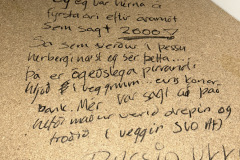 Og ég var hérna á
fyrsta ári eftir aramót
sem sagt 2000
Sá sem verður í þessu
herbergi næst og sér þetta...
Þá er ógeðslega
í veggnum...
bank. Mér var sagt að það
hefði maður verið drepin og
troðið í veggin SVO